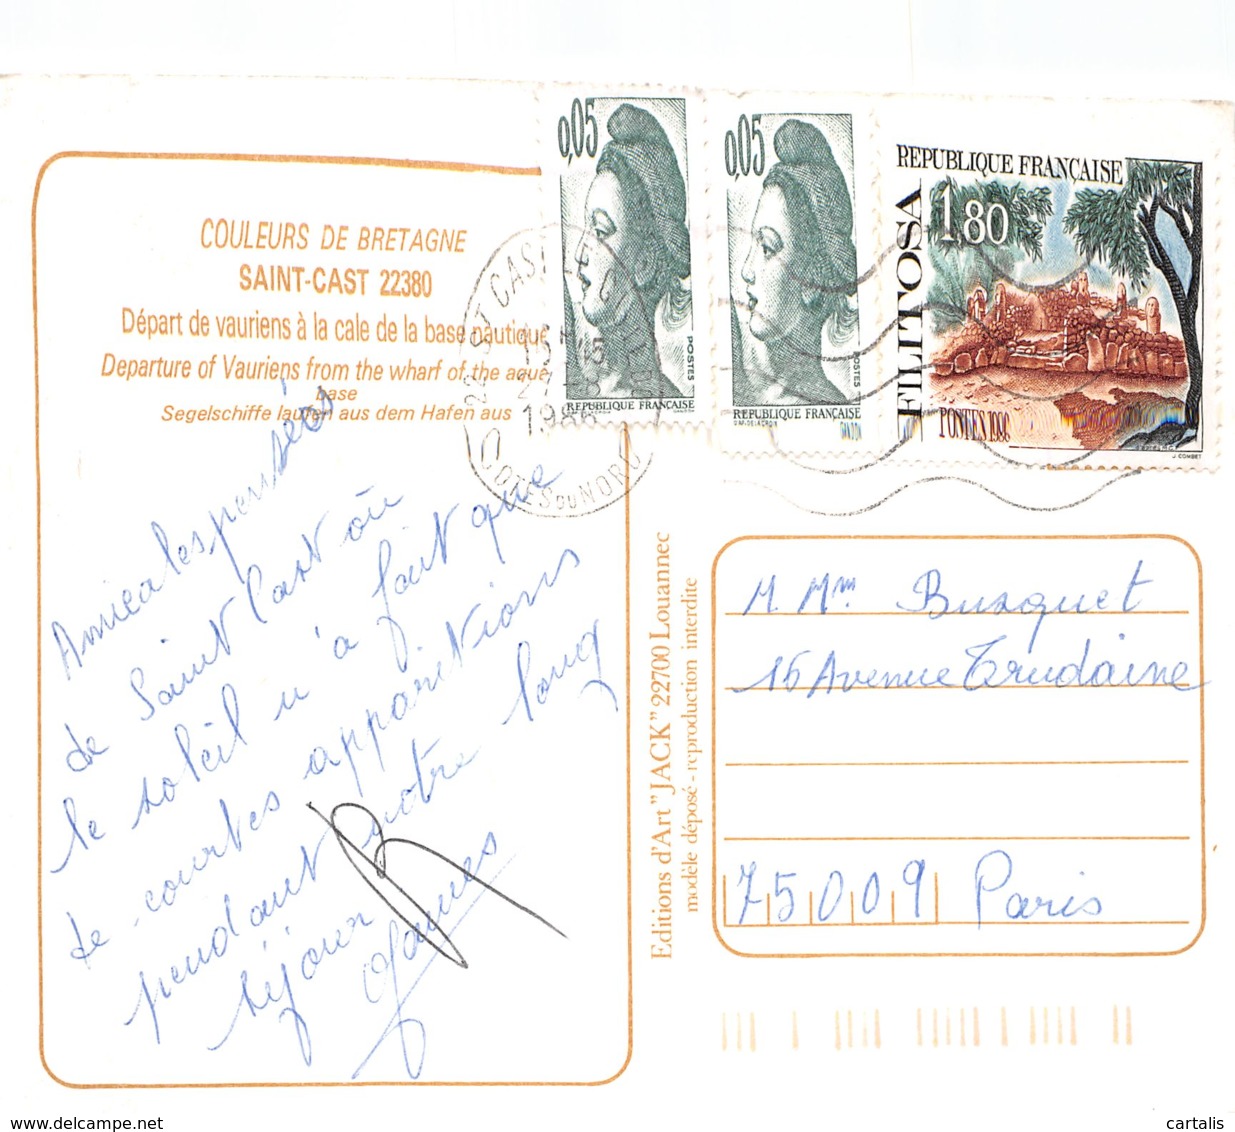 COULEURS DE BRETAGNE
SAINT-CAST 22380
Départ de vauriens à la cale de la base nautique
Departure of Vauriens from the wharf of the aqua
base
Segelschiffe laufen aus dem Hafen aus
Amicales pensées
de Saint Cast où
le soleil n'a fait que
de courtes apparitions
pendant notre long
séjour
0,05
POSTES
REPUBLIQUE FRANÇAISE
0,05
POSTES
REPUBLIQUE FRANÇAISE
GANDON
REPUBLIQUE FRANÇAISE
1,80
FILITOSA
POSTES 1986
J. COMBET
22 ST CAST LE GUILDO
1986
COTES DU NORD
Editions d'Art "JACK" 22700 Louannec
modèle déposé - reproduction interdite
M. Mme Busquet
16 Avenue Trudaine
75009 Paris
cartalis